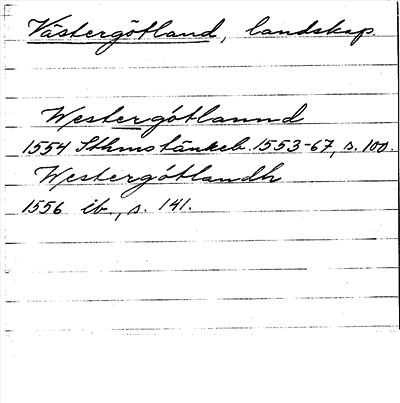 Västergötland, landskap.
Westergótlannd
1554 Sthms tänkeb. 1553-67, s. 100.
Westergótlandh
1556 ib., s. 141.